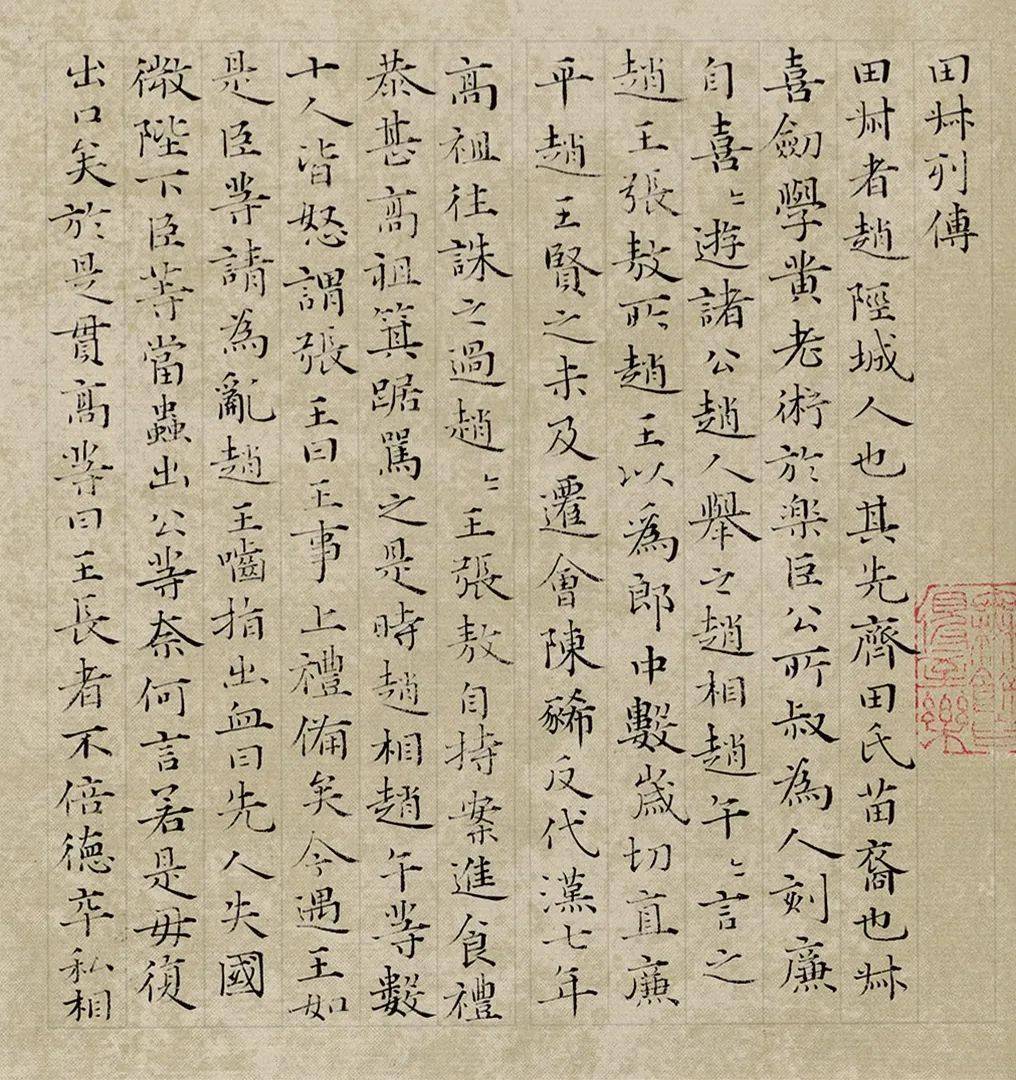 田叔列傳
田叔者趙陘城人也其先齊田氏苗裔也叔
喜劒學黃老術於樂臣公所叔為人刻廉
自喜〻遊諸公趙人舉之趙相趙午〻言之
趙王張敖所趙王以爲郎中數歲切直廉
平趙王賢之未及遷會陳豨反代漢七年
高祖往誅之過趙〻王張敖自持案進食禮
恭甚高祖箕踞罵之是時趙相趙午等數
十人皆怒謂張王曰王事上禮備矣今遇王如
是臣等請為亂趙王嚙指出血曰先人失國
微陛下臣等當蟲出公等奈何言若是毋復
出口矣於是貫高等曰王長者不倍德卒私相